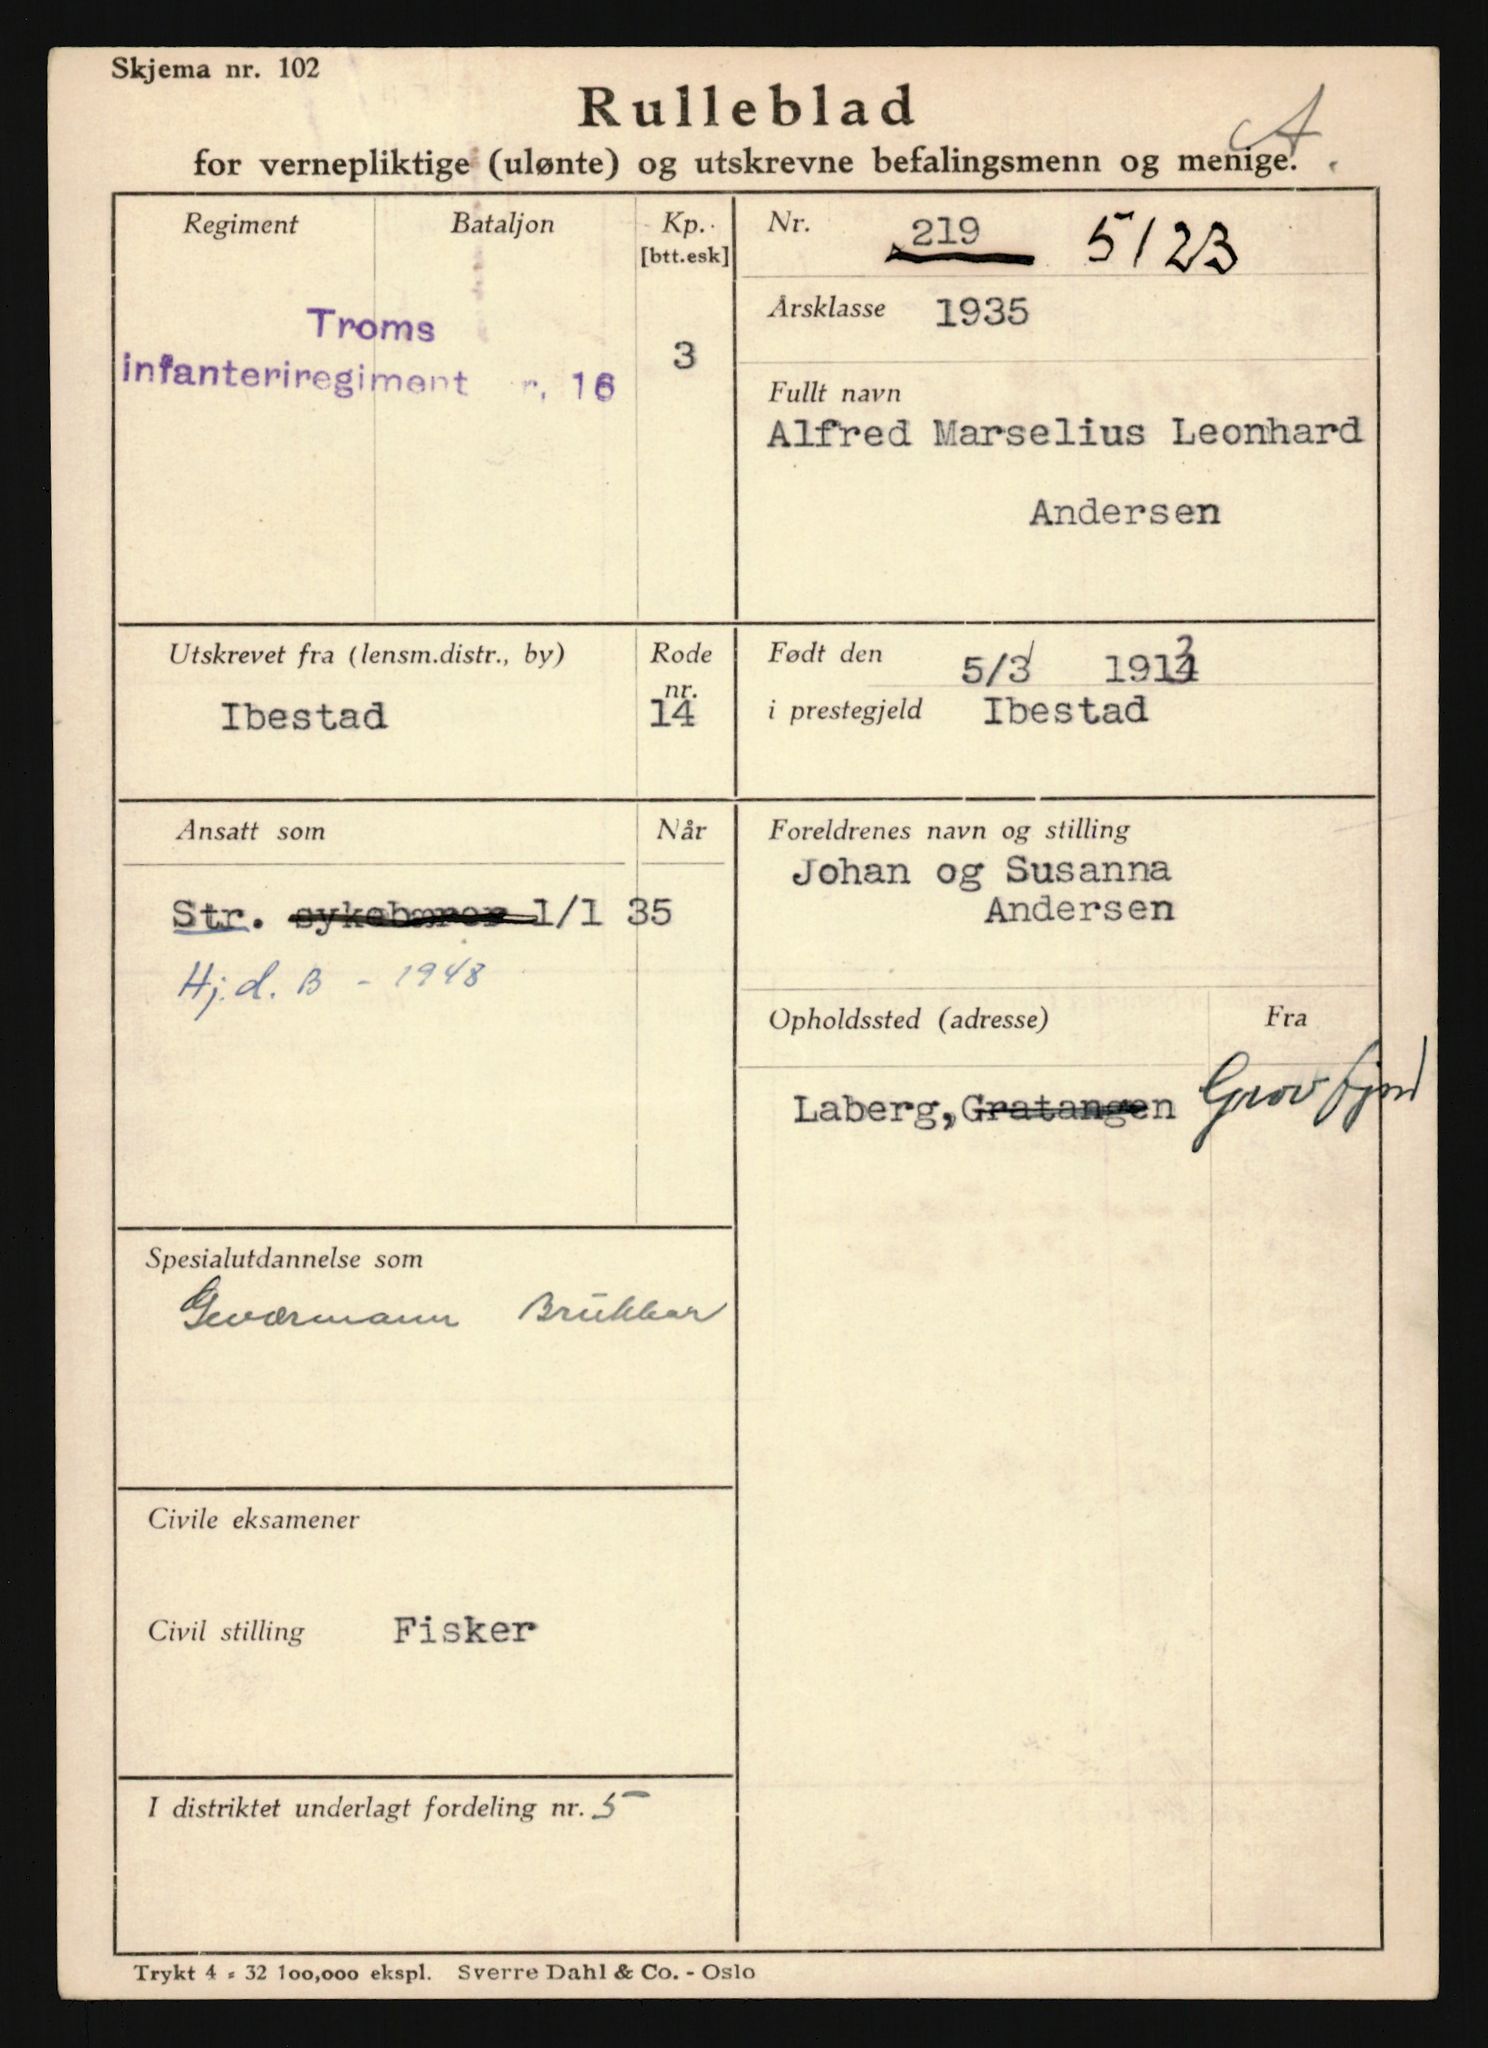 Skjema nr. 102
Rulleblad
A.
for vernepliktige (ulønte) og utskrevne befalingsmenn og menige.
Regiment
Bataljon
Kp.
[btt.esk]
Troms
infanteriregiment r. 16
3
Nr. 219 5/23
Årsklasse 1935
Fullt navn
Alfred Marselius Leonhard
Andersen
Utskrevet fra (lensm.distr., by)
Ibestad
Rode
nr.
14
Født den 5/3 1913
i prestegjeld Ibestad
Ansatt som
Når
Str. sykebærer 1/1 35
Hj.d. B - 1948
Foreldrenes navn og stilling
Johan og Susanna
Andersen
Opholdssted (adresse)
Fra
Laberg, Gratangen Grovfjord
Spesialutdannelse som
Geværmann
Civile eksamener
Civil stilling Fisker
I distriktet underlagt fordeling nr. 5
Trykt 4 - 32 100,000 ekspl. Sverre Dahl & Co. - Oslo